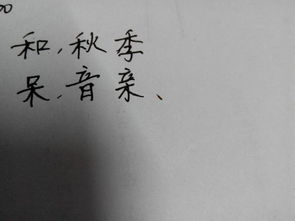 和,秋季
呆.音亲、